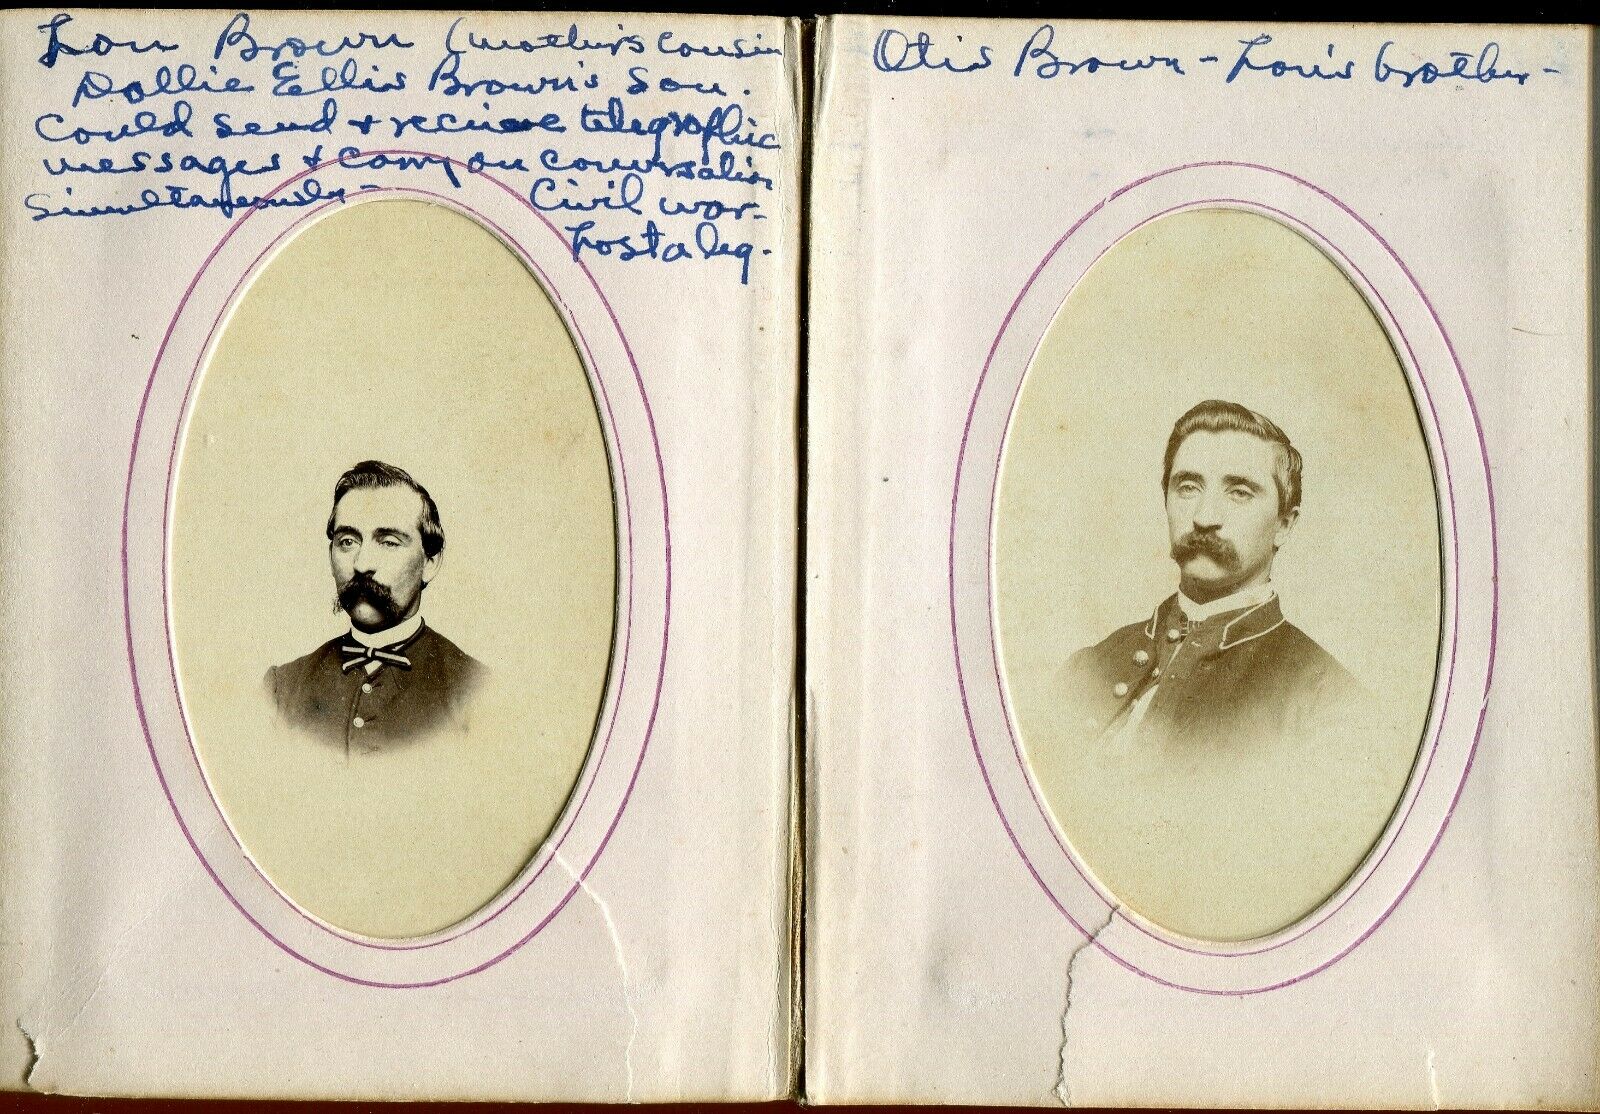 Lou Brown (mother's cousin
Dollie Ellis Brown's son.
Could send + recieve telegraphic
messages + carry on conversation
simultaneously - Civil war -
Lost a leg.
Otis Brown - Lou's brother -